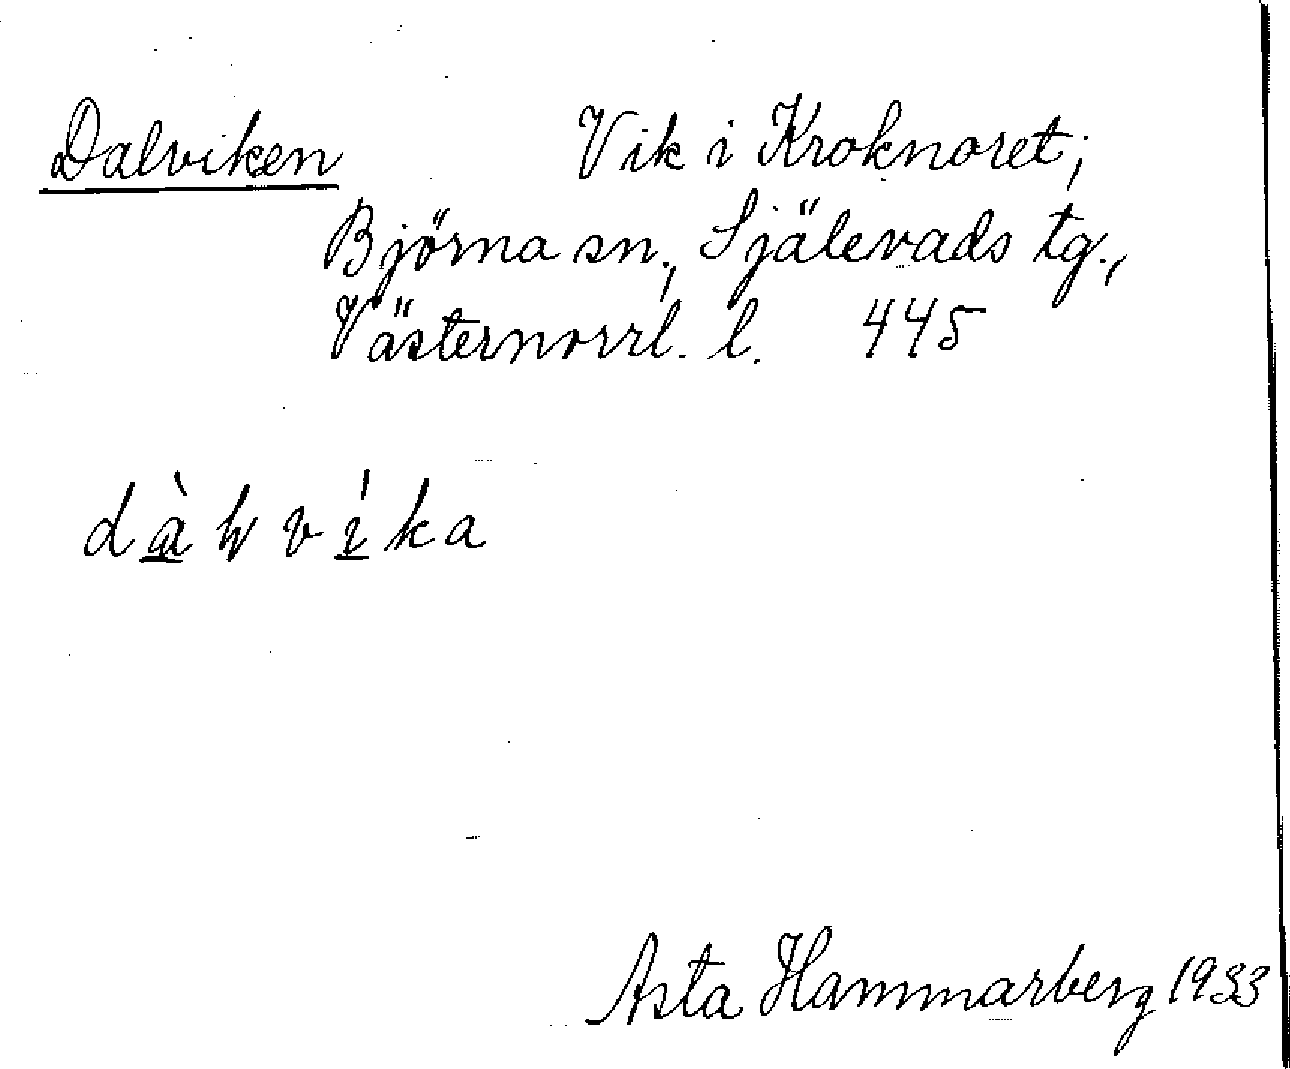 Dalviken Vik i Kroknoret;
Björna sn., Själevads tg.,
Västernorrl. l. 445
dà̲ꞎví̲ka
Asta Hammarberg 1933